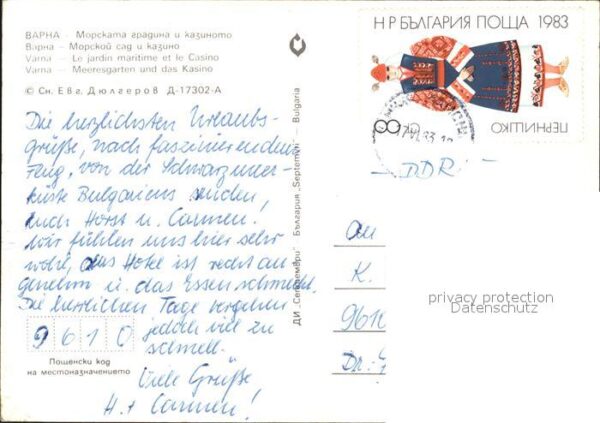 ВАРНА - Морската градина и казиното
Варна - Морской сад и казино
Varna - Le jardin maritime et le Casino
Varna - Meeresgarten und das Kasino
© Сн. Евг. Дюлгеров Д-17302-А
Die herzlichsten Urlaubs-
grüße, nach faszinierendem
Flug, von der Schwarzmeer-
küste Bulgariens senden,
Euch Horst u. Carmen.
Wir fühlen uns hier sehr
wohl, das Hotel ist recht an-
genehm u. das Essen schmeckt.
Die herrlichen Tage vergehen
jedoch viel zu
schnell.
Viele Grüße
H. + Carmen!
9610
Пощенски код
на местоназначението
ДИ „Септември" - България „Septemvri" - Bulgaria
НР БЪЛГАРИЯ ПОЩА 1983
8
ПЕРНИШКО
DDR
An
K.
9610
privacy protection
Datenschutz